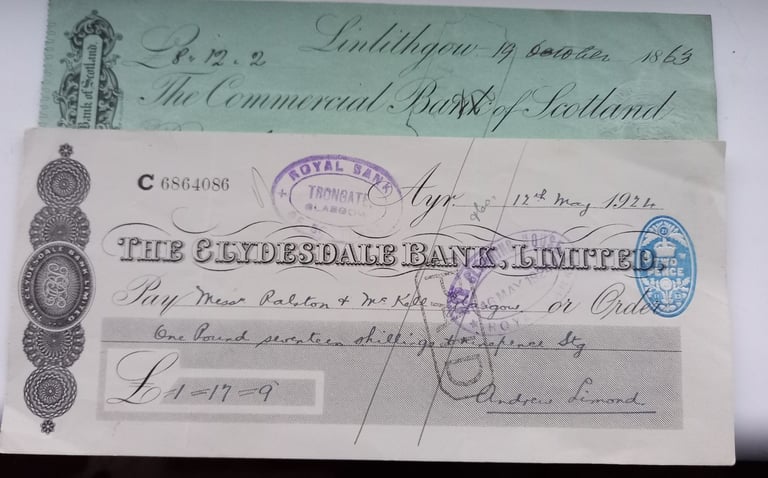 £8.12.2 Linlithgow 19 October 1863
Bank of Scotland
The Commercial Bank of Scotland
C 6864086
ROYAL BANK
TRONGATE
GLASGOW
Ayr 12th May 1924
THE CLYDESDALE BANK, LIMITED.
THE CLYDESDALE BANK LIMITED
Pay Messrs Ralston & Glasgow or Order
One Pound seventeen shillings & ninepence Stg
£1=17=9
PAID
Andrew Limond